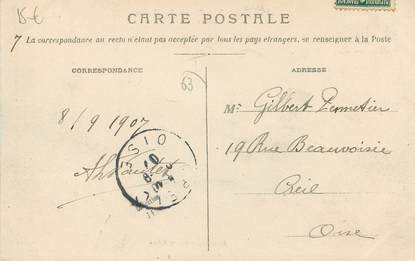 15€
CARTE POSTALE
7 La correspondance au recto n'étant pas acceptée par tous les pays étrangers, se renseigner à la Poste
CORRESPONDANCE
63
ADRESSE
8/9 1907
Mr Gilbert
19 Rue Beauvoisie
Creil
Oise